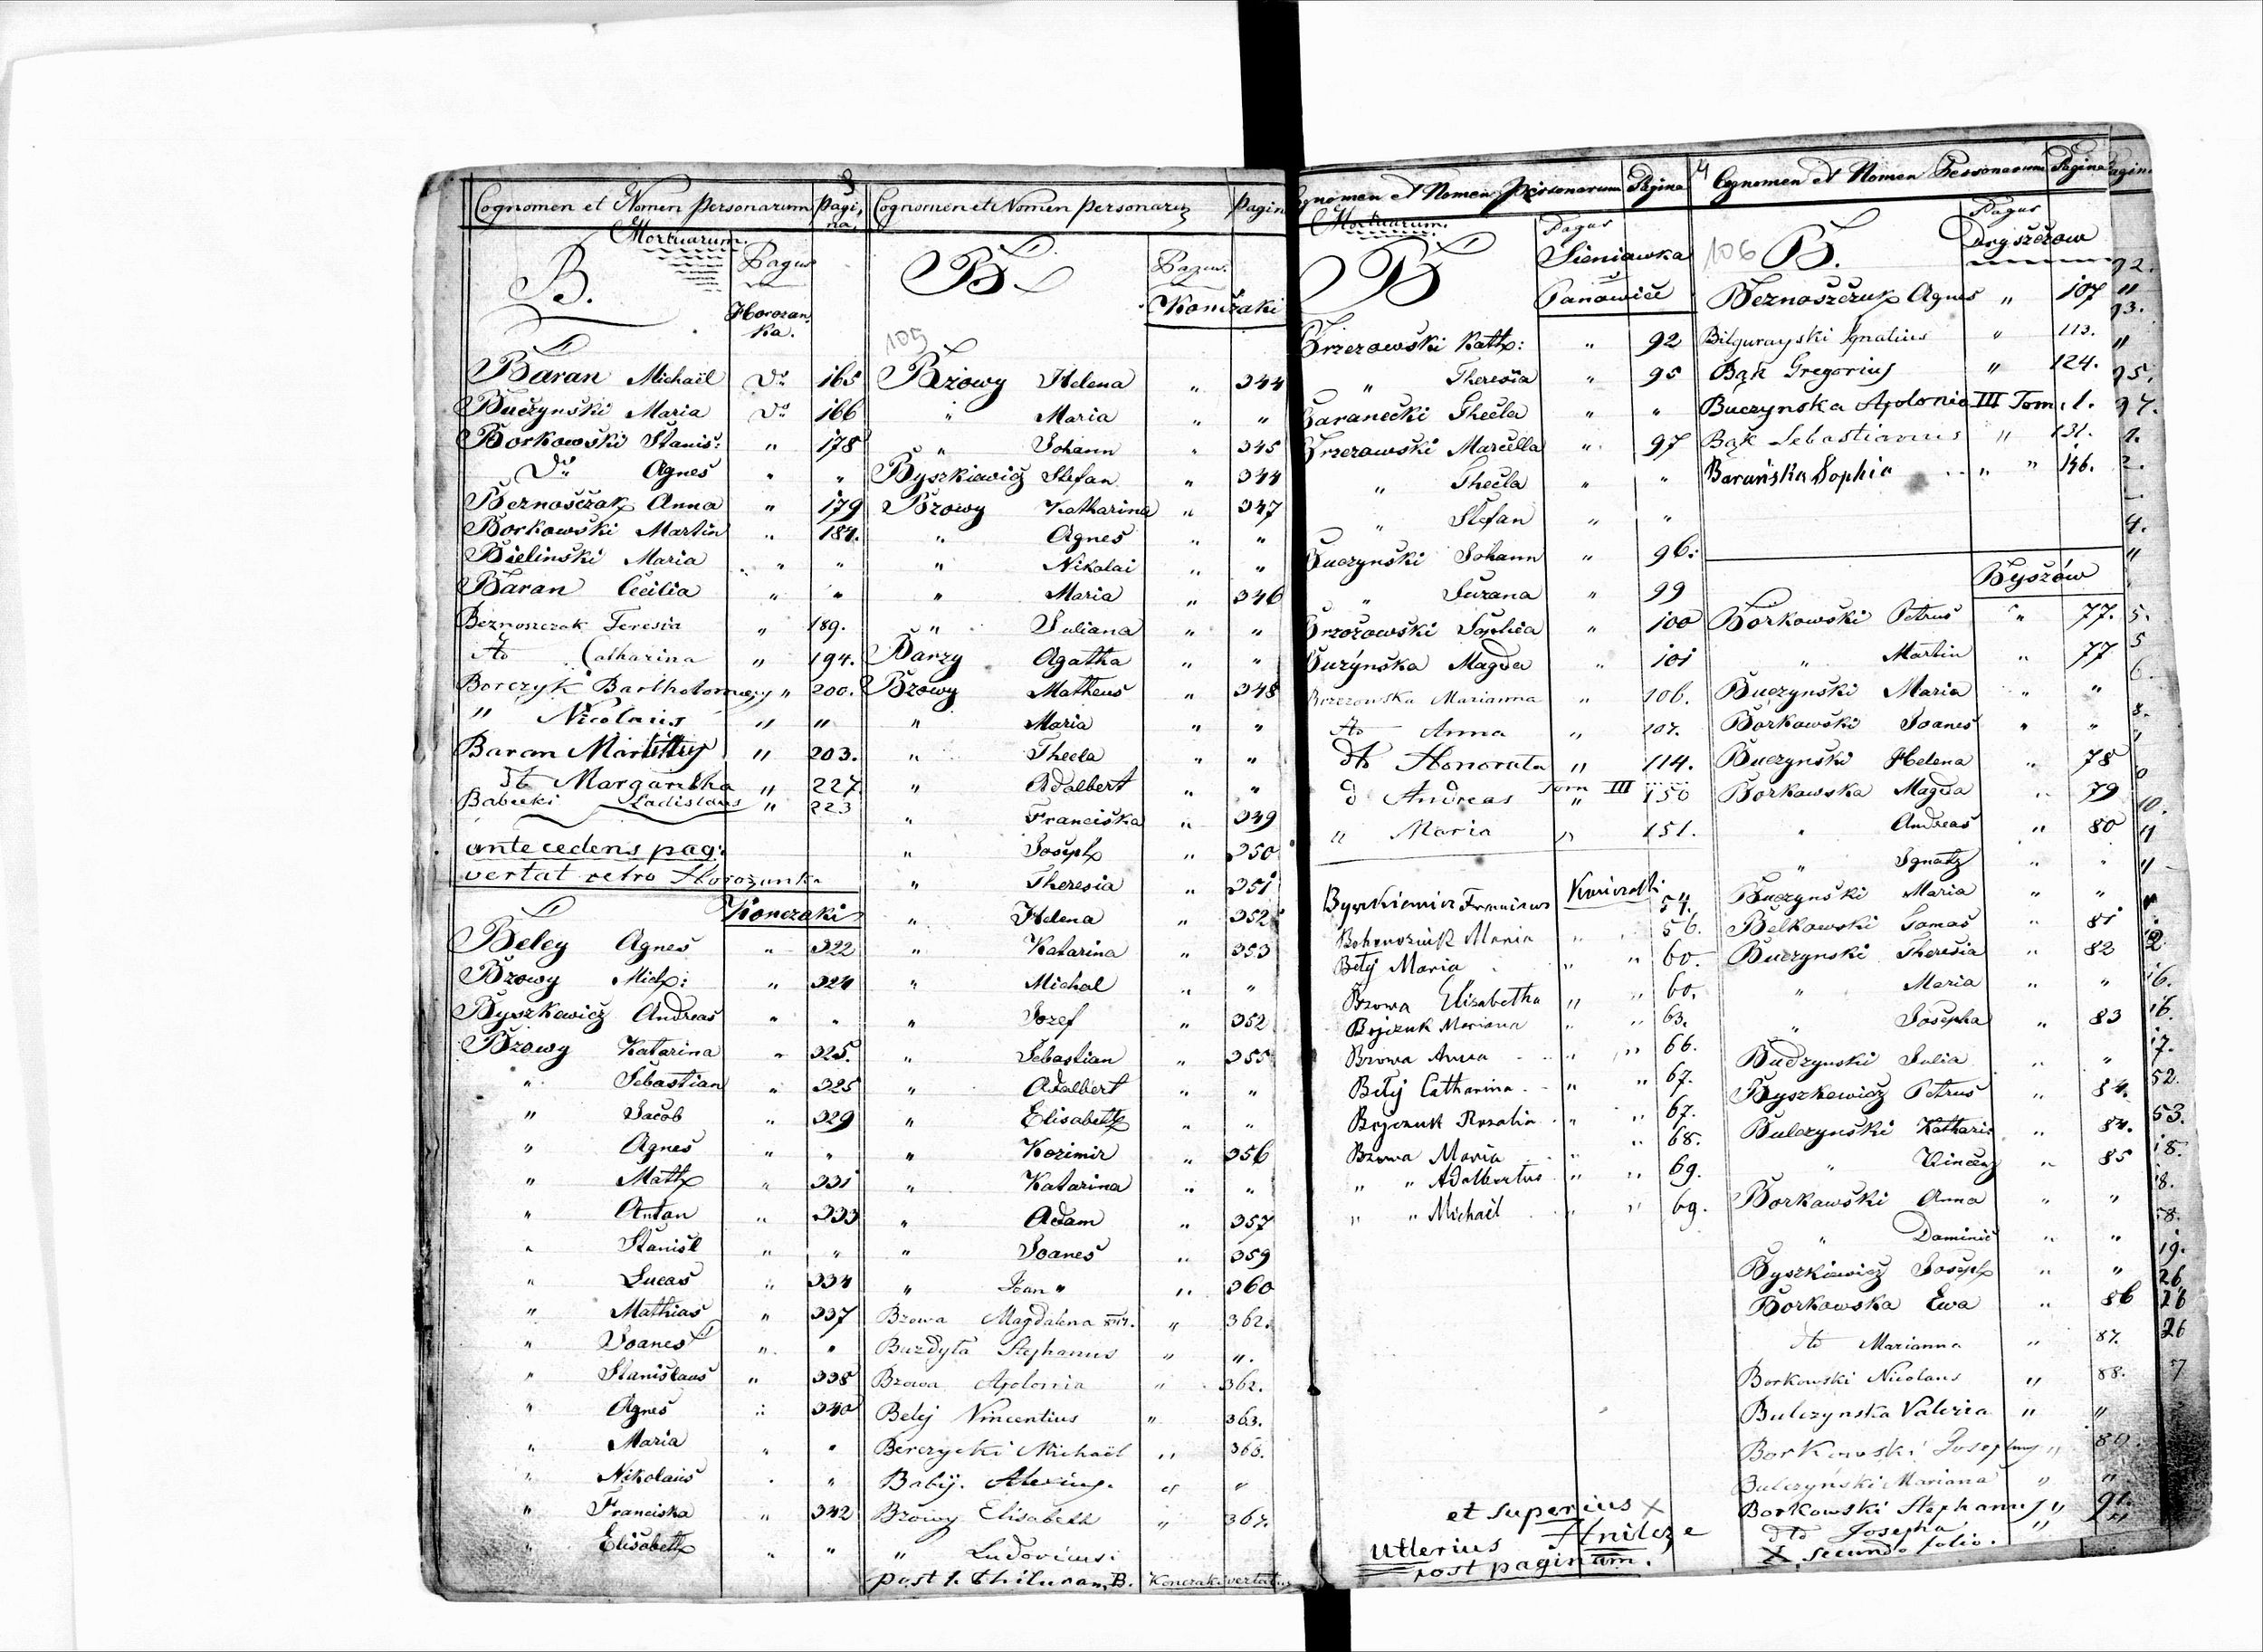 3
Cognomen et Nomen Personarum Pagina
Mortuarum.
B. Pagus
Horozanka.
Baran Michaël Do 165
Buczynski Maria Do 166
Borkowski Stanis: " 178
Do Agnes " "
Beznosczak Anna " 179
Borkowski Martin " 184.
Bielinski Maria " "
Baran Cecilia " "
Beznoszczak Teresia " 189.
dto Catharina " 194.
Borczyk Bartholomaeus " 200.
" Nicolaus " "
Baran Martinus " 203.
dto Margaretha " 227
Babicki Ladislaus " 223
antecedens pag:
vertat retro Horozanka
Konczaki
Beley Agnes " 322
Bzowy Mich: " 324
Byszkewicz Andreas " "
Bzowy Katarina " 325.
" Sebastian " 325
" Jacob " 329
" Agnes " "
" Math " 331
" Antan " 333
" Stanisl " "
" Lucas " 334
" Mathias " 337
" Joanes " "
" Stanislaus " 338
" Agnes " 340
" Maria " "
" Nikolaus " "
" Franciska " 342
" Elisabeth " "
Cognomen et Nomen Personarum Pagin
B. Pagus.
Konczaki
105
Bzowy Helena " 344
" Maria " "
" Johann " 345
Byszkiewicz Stefan " 344
Bzowy Katharina " 347
" Agnes " "
" Nikolai " "
" Maria " 346
" Juliana " "
Barzy Agatha " "
Bzowy Matheus " 348
" Maria " "
" Thecla " "
" Adalbert " "
" Franciska " 349
" Joseph " 350
" Theresia " 351
" Helena " 352
" Katarina " 353
" Michal " "
" Jozef " 352
" Sebastian " 355
" Adalbert " "
" Elisabeth " "
" Kozimir " 356
" Katarina " "
" Adam " 357
" Joanes " 359
" Joan " " 360
Bzowa Magdalena " 362.
Buzdyla Stephanus " ".
Bzowa Apolonia " 362.
Belej Vincentius " 363.
Berczycki Michaël " 366.
Babij. " "
Bzowy Elisabeth " 367.
" Ludovicus.
post B. Konczaki vertatur
gnomen et Nomen Personarum Pagina
Mortuarum.
B Pagus
Sieniawka
Panowice
Brzezowski Kath: " 92
" Theresia " 95
Baranecki Thecla " "
Brzezowski Marcella " 97
" Thecla " "
" Stefan " "
Buczynski Johann " 96.
" Suzana " 99
Brzozowski Sophia " 100
Buzynska Magda " 101
Brzezowska Marianna " 106.
dto Anna " 107.
dto Honorata " 114.
d Andreas Tom III " 150
" Maria " 151.
Konczaki
Byszkiewicz Franciscus 54.
Bohenoziuk Maria " " 56.
Bełej Maria " " 60.
Bzowa Elisabetha " " 60.
Bojczuk Mariana " " 63.
Bzowa Anna " " 66.
Bełej Catharina " " 67.
Bojczuk Rozalia " " 67.
Bzowa Maria " " 68.
" " Adalbertus " " 69.
" " Michaël " " 69.
et superius X
Ulterius Hnilcze
post paginam.
4
Cognomen et Nomen Personarum Pagina
106 B. Pagus
Dryszczow
Beznoszczuk Agnes " 107
Bilgurayski Ignatius " 113.
Bąk Gregorius " 124.
Buczynska Apolonia III Tom. 1.
Bąk Sebastianus " 131.
Barańska Sophia " " 146.
Byszów
Borkowski Petrus " 77.
" Martin " 77
Buczynski Maria " "
Borkowski Joanes " "
Buczynski Helena " 78
Borkowska Magda " 79
" Andreas " 80
" Ignatz " "
Buczynski Maria " "
Belkowski Tomas " 81
Buczynski Theresia " 82
" Maria " "
" Josepha " 83
Budzynski Julia " "
Byszkewicz Petrus " 84.
Bulczynski Kathari: " 84.
" Vincenz " 85
Borkawski Anna " "
" Daminic " "
Byszkiewicz Joseph " "
Borkowska Ewa " 86
dto Marianna " 87.
Borkowski Nicolaus " 88.
Bulczynska Valeria " "
Borkowski Josephus " 89.
Bulczyński Mariana " "
Borkowski Stephanus " 91.
dto Josepha " "
X secundo folio.